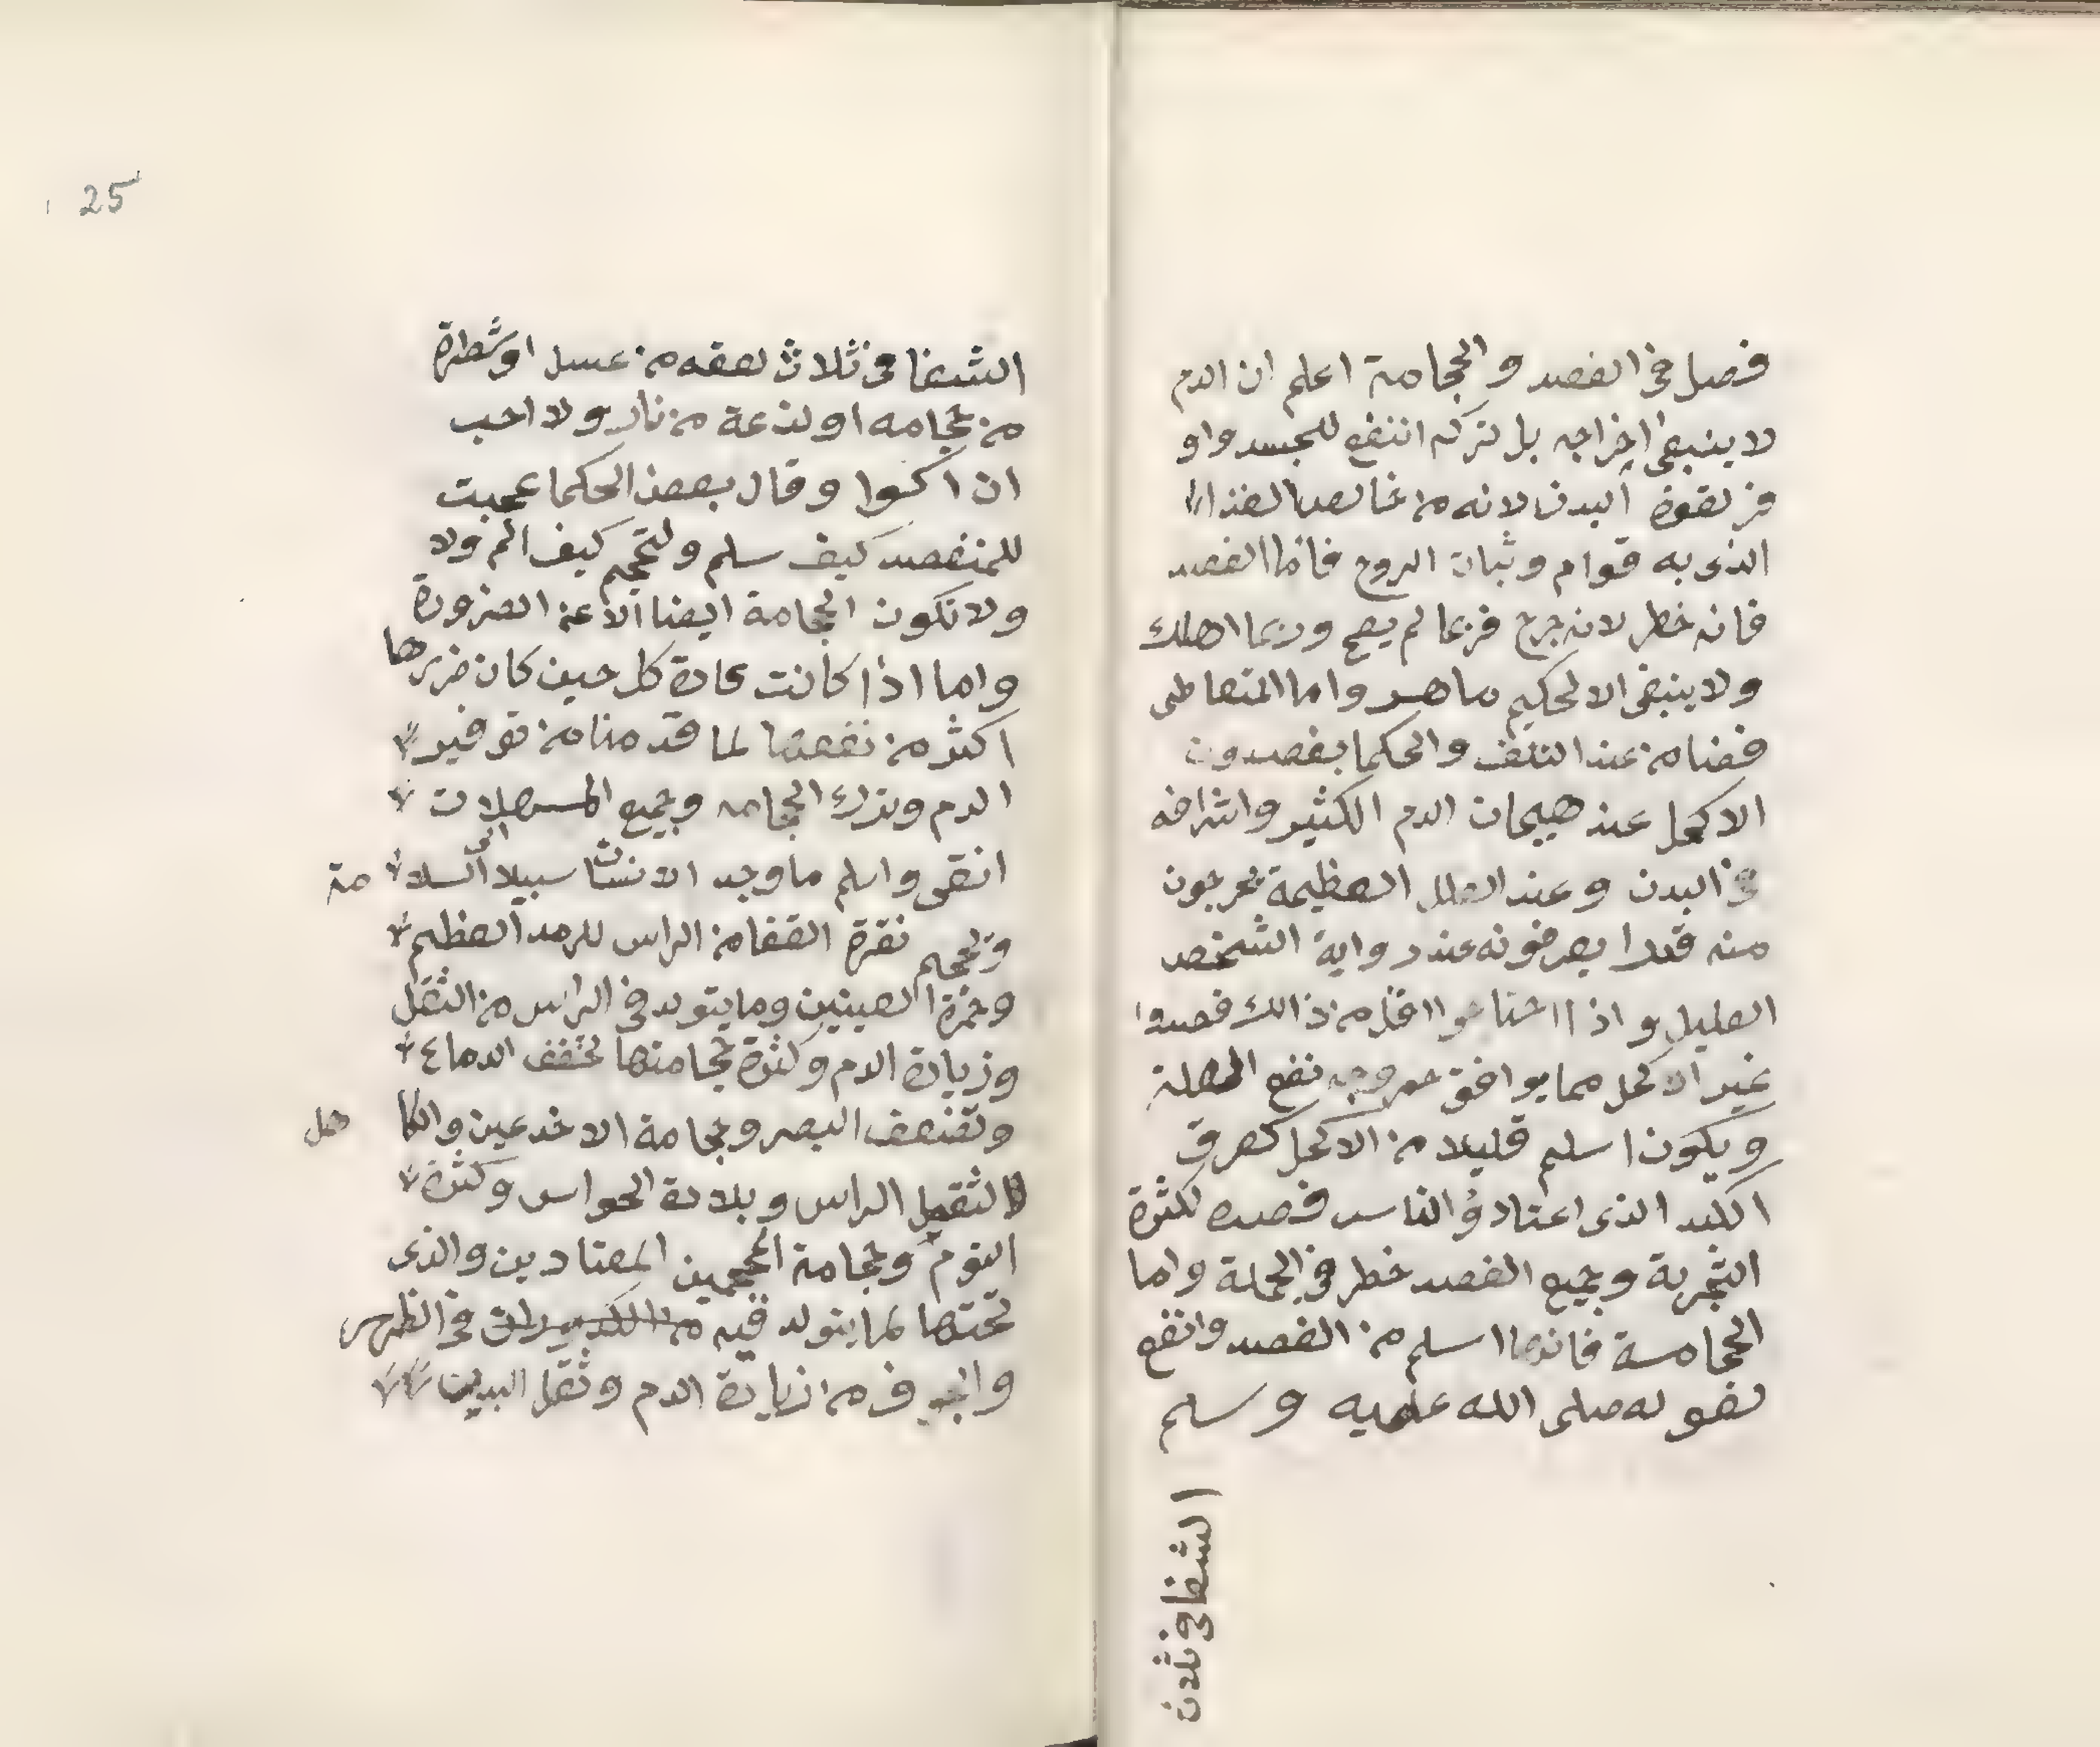 فصل في الفصد والحجامة اعلم ان الدم
لا ينبغي اخراجه بل تركه انفع للجسد واو
فر لقوة البدن لانه من خالص الغذا
الذي به قوام وثبات الروح فاما الفصد
فانه خطر لانه جرح فربما لم يصح وربما اهلك
ولا ينبغي الا لحكيم ماهر واما المتعاطي
فضامن عند التلف والحكما يفصدون
الاكحل عند هيجان الدم الكثير واشرافه
في البدن وعند العلل العظيمة يخرجون
منه قدرا يعرفونه عند رواية الشخص
العليل واذا احتاجوا اقل من ذالك فصدوا
غير الاكحل مما يوافق خروجه نفع العلة
ويكون اسلم قليلا من الاكحل كعرق
الكبد الذي اعتاد والناس فصده لكثرة
التجربة وجميع الفصد خطر في الجملة واما
الحجامة فانها اسلم من الفصد وانفع
لقوله صلى الله عليه وسلم
الشفا في ثلاث
25
الشفا في ثلاث لعقه من عسل او شطرة
من حجامه او لذعة من نار ولا احب
ان اكتوا وقال بعض الحكما عجبت
للمنفصد كيف سلم ولتحجم كيف الم ولا
ولا تكون الحجامة ايضا الا عن الضرورة
واما اذا كانت عادة كل حين كان ضررها
اكثر من نفعها لما قدمنا من توفير
الدم وترك الحجامه وجميع المسهلات
انقى واسلم ما وجد الانسان سبيلا الى السلامة
وتحجم نقرة القفا من الراس للرمد العظيم
وحمرة العينين وما يتولد في الراس من الثقل
وزيادة الدم وكثرة حجامتها تخفف الدماغ
وتضعف البصر وحجامة الاخدعين والكاهل
لثقل الراس وبلادة الحواس وكثرة
النوم وحجامة المحجمين المعتادين والذي
تحتها لما يتولد فيه في الظهر
والجوف من زيادة الدم وثقل البدن